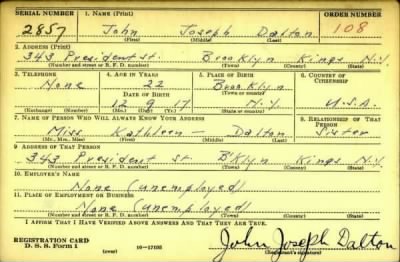 SERIAL NUMBER 1. NAME (Print) ORDER NUMBER
2857 John Joseph Dalton 108
(First) (Middle) (Last)
2. ADDRESS (Print)
343 President st. Brooklyn Kings N.Y.
(Number and street or R. F. D. number) (Town) (County) (State)
3. TELEPHONE 4. AGE IN YEARS 5. PLACE OF BIRTH 6. COUNTRY OF CITIZENSHIP
None 22 Brooklyn
DATE OF BIRTH (Town or county)
12 9 17 N.Y. U.S.A.
(Exchange) (Number) (Mo.) (Day) (Yr.) (State or country)
7. NAME OF PERSON WHO WILL ALWAYS KNOW YOUR ADDRESS 8. RELATIONSHIP OF THAT PERSON
Miss Kathleen — Dalton Sister
(Mr., Mrs., Miss) (First) (Middle) (Last)
9. ADDRESS OF THAT PERSON
343 President st B'klyn Kings N.Y.
(Number and street or R. F. D. number) (Town) (County) (State)
10. EMPLOYER'S NAME
None (unemployed)
11. PLACE OF EMPLOYMENT OR BUSINESS
None (unemployed)
(Number and street or R. F. D. number) (Town) (County) (State)
I AFFIRM THAT I HAVE VERIFIED ABOVE ANSWERS AND THAT THEY ARE TRUE.
REGISTRATION CARD
D. S. S. Form 1 16—17105 John Joseph Dalton
(Registrant's signature)